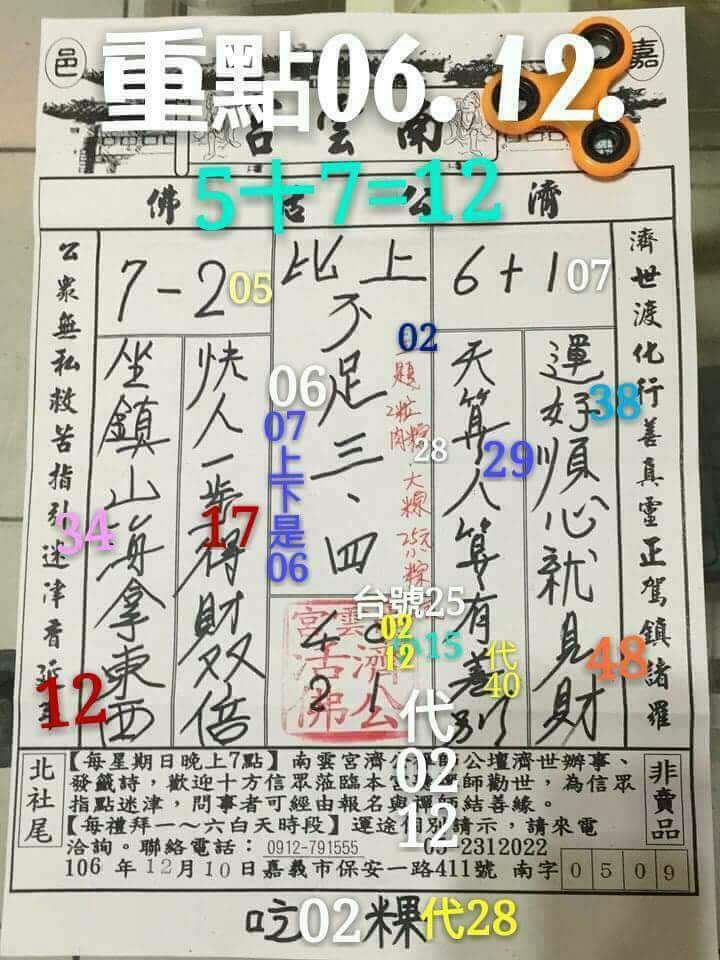 重點06.12.
邑
嘉
南雲宮
5十7=12
濟公活佛
濟世渡化行善真靈正駕鎮諸羅
公眾無私救苦指引迷津看延
6+1 07
比上
7-2 05
運好順心就見財
38
48
天算人算有差別
29
代40
02
題
2粒肉粽
28
大粿25元
小粽
不足三、四
06
07上下是06
台號25
02
12
15
4 8
2 1
代
02
12
快人一步得財双倍
17
坐鎮山海拿東西
34
12
北社尾
非賣品
【每星期日晚上7點】南雲宮濟公禪師公壇濟世辦事、
發籤詩，歡迎十方信眾蒞臨本宮聽禪師勸世，為信眾
指點迷津，問事者可經由報名與禪師結善緣。
【每禮拜一～六白天時段】運途個別請示，請來電
洽詢。聯絡電話：0912-791555 05-2312022
106 年12月10日嘉義市保安一路411號 南字 0509
吃02粿代28